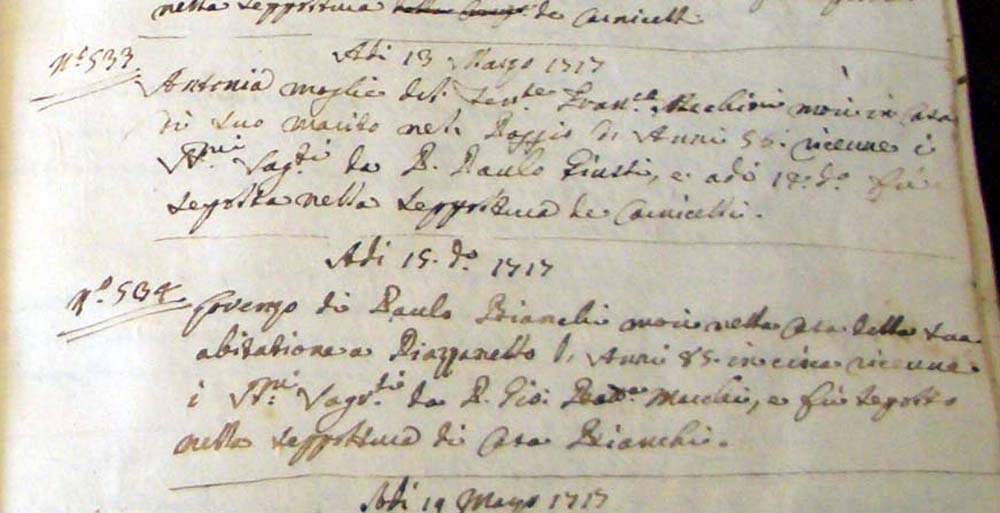 nella seppoltura della de Carnicelli
Adi 13 Marzo 1717
N.o 533
Antonia moglie del Ten.te Fran.co morì in Casa
di suo marito nel Poggio di Anni 55. riceuue i
S.mi Sag.ti da P. Paulo Giusti, e adi 14. d.o fu
sepolta nella seppoltura de Carnicelli.
Adi 15. d.o 1717
N.o 534
Lorenzo di Paulo Bianchi morì nella Casa della sua
abitatione a Piazzanello di Anni 85. in circa riceuue
i S.mi Sagr.ti da P. Gio: Batta Macchi, e fu sepolto
nella seppoltura di Casa Bianchi.
Adi 19 Marzo 1717